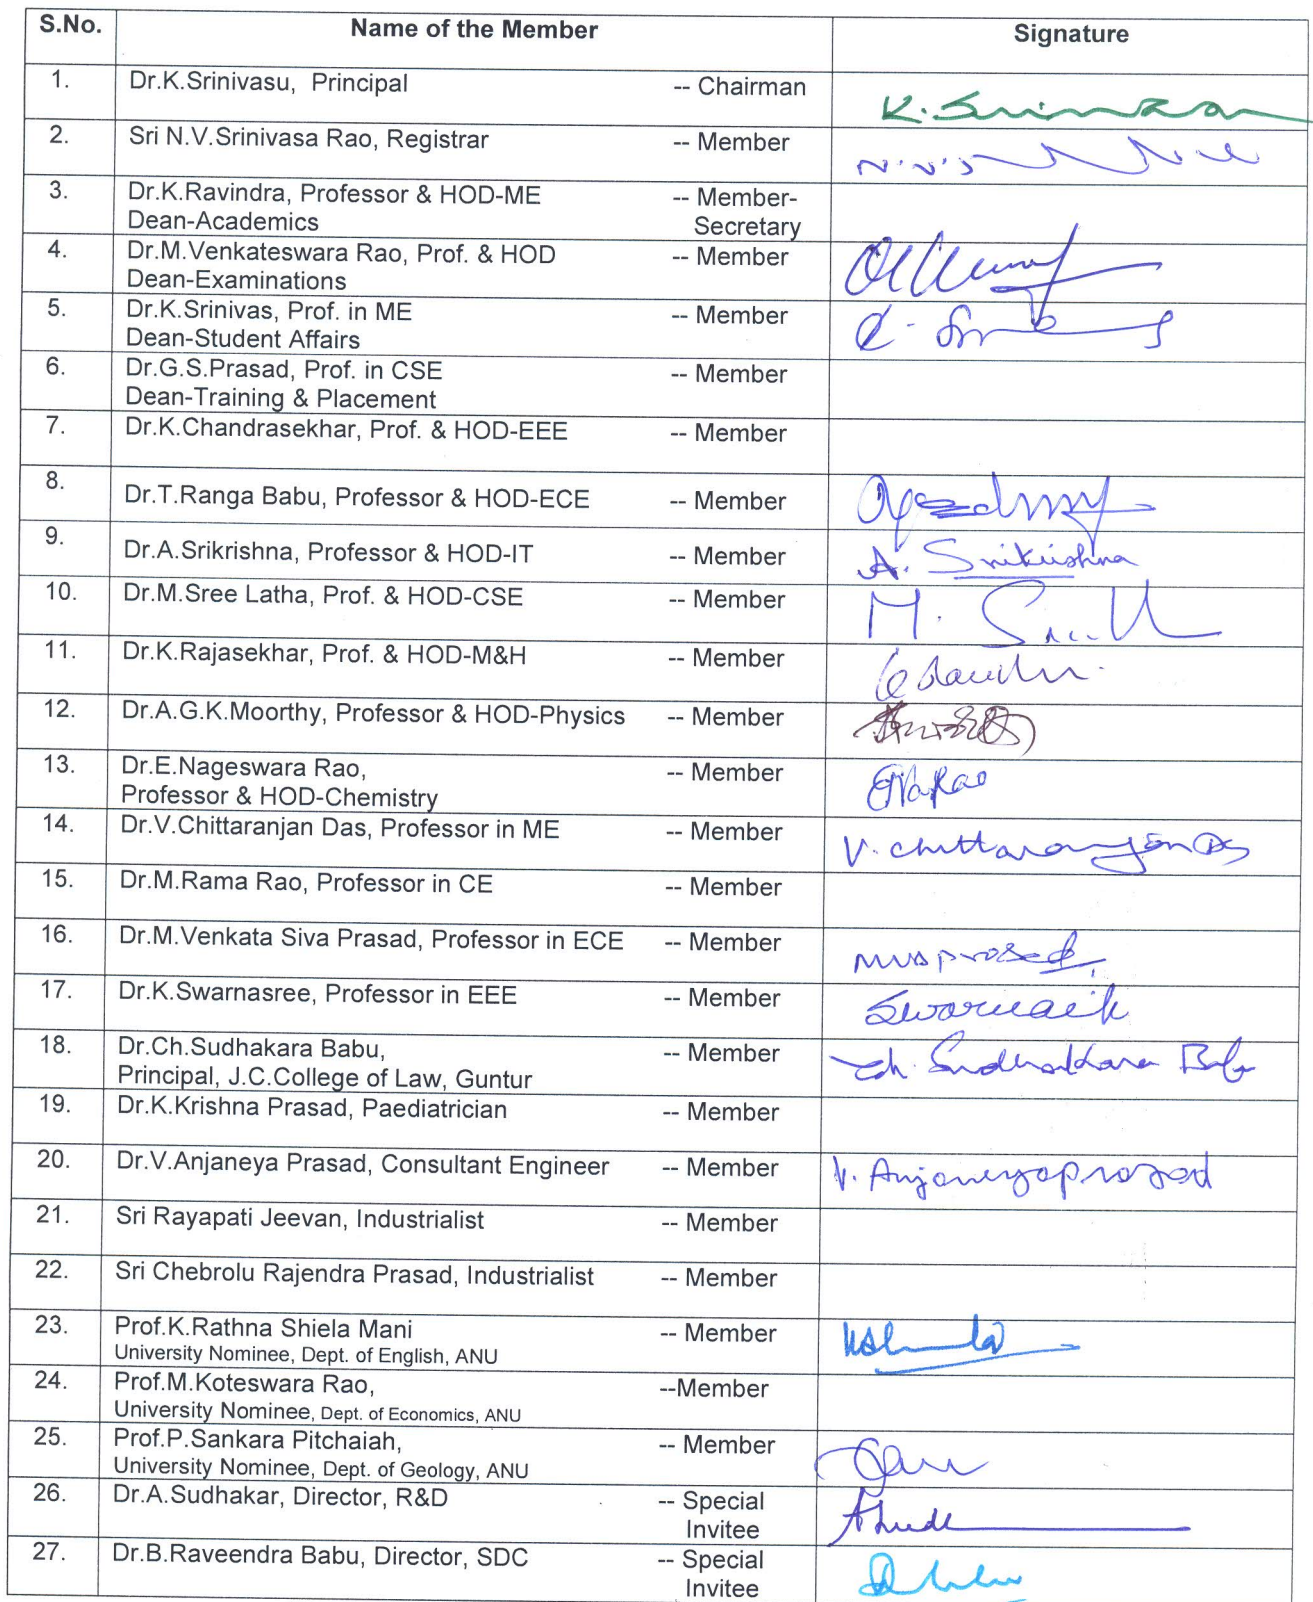 S.No. Name of the Member Signature
1. Dr.K.Srinivasu, Principal -- Chairman K. Srinivasu
2. Sri N.V.Srinivasa Rao, Registrar -- Member N.V.S
3. Dr.K.Ravindra, Professor & HOD-ME -- Member-
Dean-Academics Secretary
4. Dr.M.Venkateswara Rao, Prof. & HOD -- Member
Dean-Examinations
5. Dr.K.Srinivas, Prof. in ME -- Member
Dean-Student Affairs
6. Dr.G.S.Prasad, Prof. in CSE -- Member
Dean-Training & Placement
7. Dr.K.Chandrasekhar, Prof. & HOD-EEE -- Member
8. Dr.T.Ranga Babu, Professor & HOD-ECE -- Member
9. Dr.A.Srikrishna, Professor & HOD-IT -- Member A. Srikrishna
10. Dr.M.Sree Latha, Prof. & HOD-CSE -- Member M.
11. Dr.K.Rajasekhar, Prof. & HOD-M&H -- Member
12. Dr.A.G.K.Moorthy, Professor & HOD-Physics -- Member
13. Dr.E.Nageswara Rao, -- Member
Professor & HOD-Chemistry
14. Dr.V.Chittaranjan Das, Professor in ME -- Member V. Chittaranjan Das
15. Dr.M.Rama Rao, Professor in CE -- Member
16. Dr.M.Venkata Siva Prasad, Professor in ECE -- Member mvsprasad
17. Dr.K.Swarnasree, Professor in EEE -- Member
18. Dr.Ch.Sudhakara Babu, -- Member Ch. Sudhakara Babu
Principal, J.C.College of Law, Guntur
19. Dr.K.Krishna Prasad, Paediatrician -- Member
20. Dr.V.Anjaneya Prasad, Consultant Engineer -- Member V. Anjaneyaprasad
21. Sri Rayapati Jeevan, Industrialist -- Member
22. Sri Chebrolu Rajendra Prasad, Industrialist -- Member
23. Prof.K.Rathna Shiela Mani -- Member
University Nominee, Dept. of English, ANU
24. Prof.M.Koteswara Rao, --Member
University Nominee, Dept. of Economics, ANU
25. Prof.P.Sankara Pitchaiah, -- Member
University Nominee, Dept. of Geology, ANU
26. Dr.A.Sudhakar, Director, R&D -- Special
Invitee
27. Dr.B.Raveendra Babu, Director, SDC -- Special
Invitee